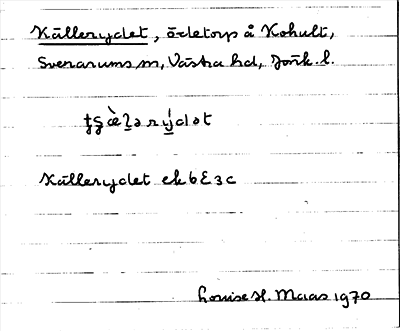 Källerydet, ödetorp å Kohult,
Svenarums sn, Västra hd, Jönk. l.
Källerydet ek 6E3c
Louise H. Maas 1970